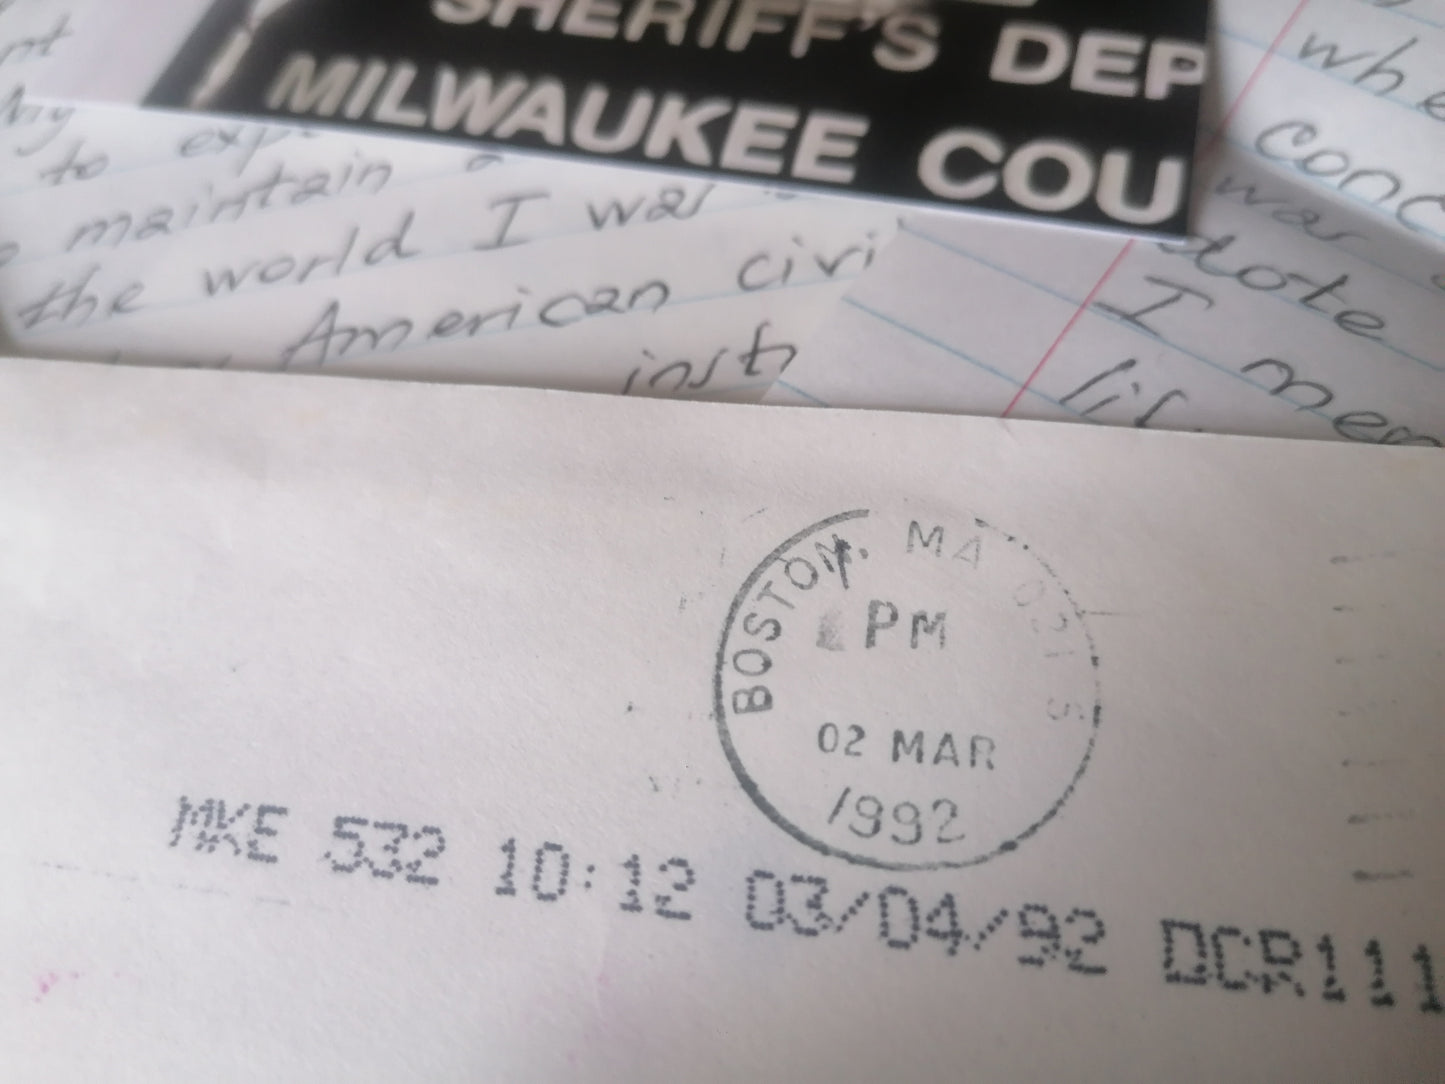 SHERIFF'S DEP
MILWAUKEE COU
to
maintain a
the world I was
American civi
whe
conc
was
I
BOSTON, MA 021 5
PM
02 MAR
1992
MKE 532 10:12 03/04/92 DCR111